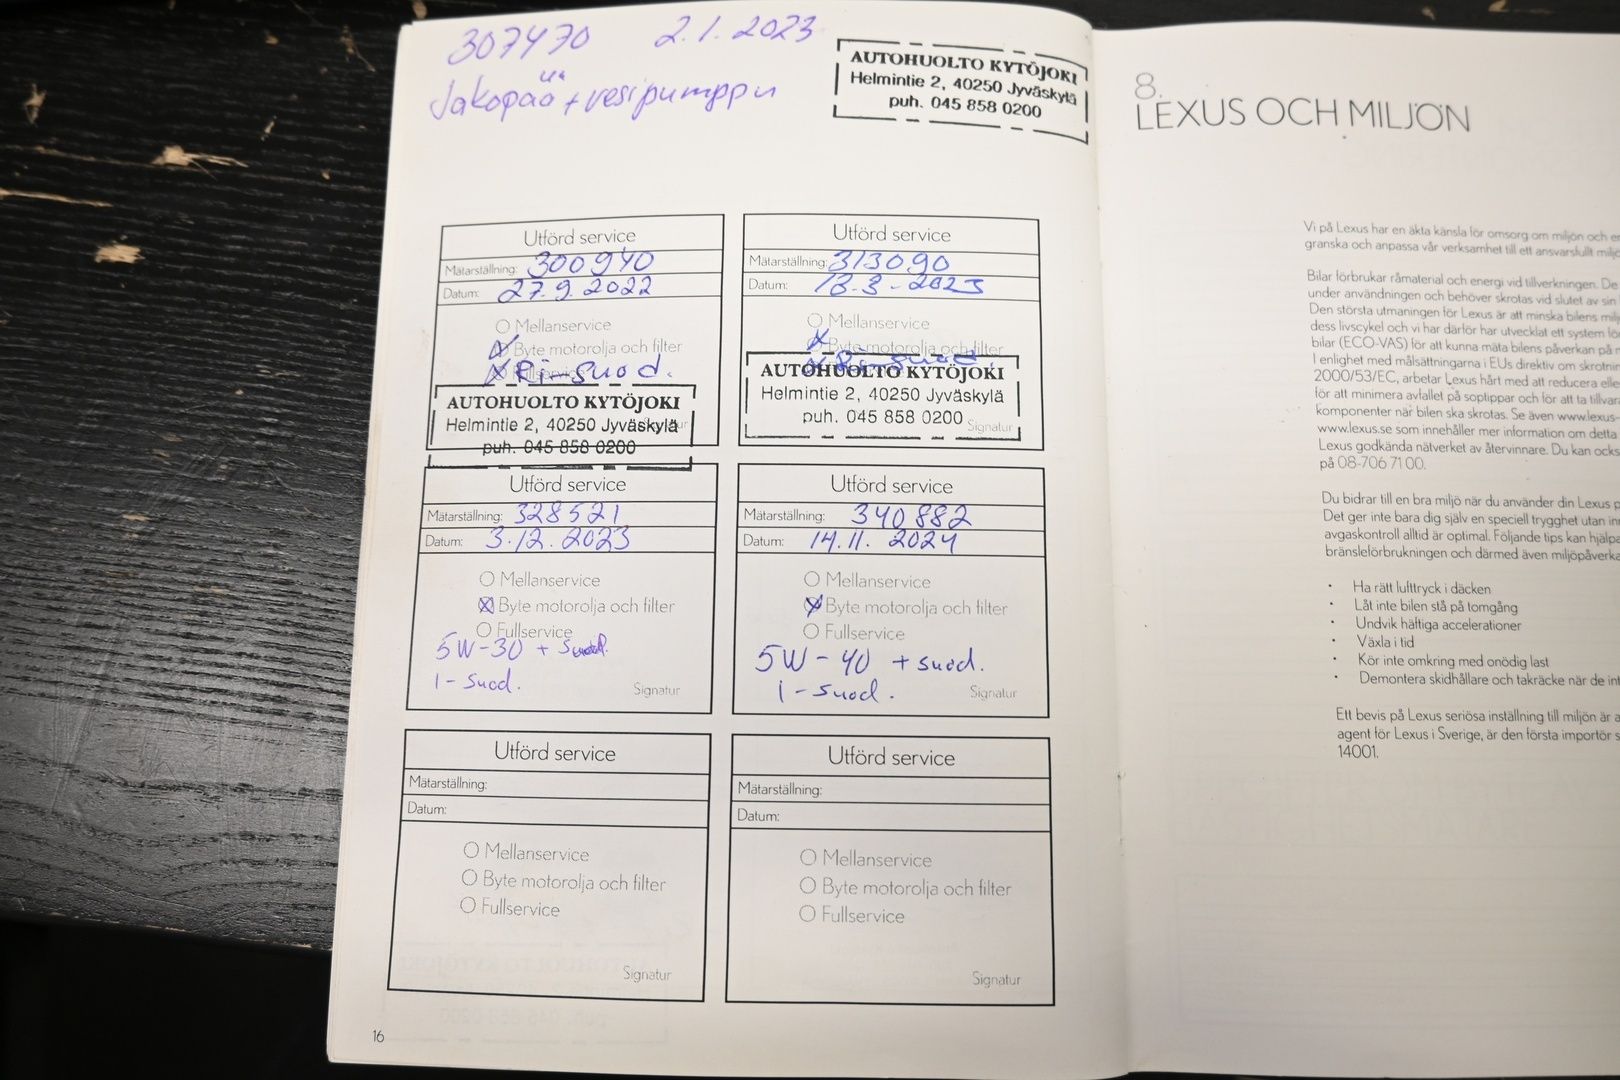 307470 2.1.2023
Jakopää + vesipumppu
AUTOHUOLTO KYTÖJOKI
Helmintie 2, 40250 Jyväskylä
puh. 045 858 0200
Utförd service
Mätarställning: 300940
Datum: 27.9.2022
Mellanservice
Byte motorolja och filter
Ri-suod.
AUTOHUOLTO KYTÖJOKI
Helmintie 2, 40250 Jyväskylä
puh. 045 858 0200
Utförd service
Mätarställning: 313090
Datum: 13.3-2023
Mellanservice
Byte motorolja och filter
AUTOHUOLTO KYTÖJOKI
Helmintie 2, 40250 Jyväskylä
puh. 045 858 0200
Signatur
Utförd service
Mätarställning: 328521
Datum: 3.12.2023
Mellanservice
Byte motorolja och filter
Fullservice
5W-30 + suod.
i-suod.
Signatur
Utförd service
Mätarställning: 340882
Datum: 14.11. 2024
Mellanservice
Byte motorolja och filter
Fullservice
5W-40 + suod.
i-suod.
Signatur
Utförd service
Mätarställning:
Datum:
Mellanservice
Byte motorolja och filter
Fullservice
Signatur
Utförd service
Mätarställning:
Datum:
Mellanservice
Byte motorolja och filter
Fullservice
Signatur
16
8.
LEXUS OCH MILJÖN
Vi på Lexus har en äkta känsla för omsorg om miljön och
granska och anpassa vår verksamhet till ett ansvarsfullt
Bilar förbrukar råmaterial och energi vid tillverkningen. De
under användningen och behöver skrotas vid slutet av sin
Den största utmaningen för Lexus är att minska bilens
dess livscykel och vi har därför har utvecklat ett system
bilar (ECO-VAS) för att kunna mäta bilens påverkan på
I enlighet med målsättningarna i EUs direktiv om
2000/53/EC, arbetar Lexus hårt med att reducera
för att minimera avfallet på soptippar och för att ta
komponenter när bilen ska skrotas. Se även www.lexus-
www.lexus.se som innehåller mer information om detta
Lexus godkända nätverket av återvinnare. Du kan
på 08-706 71 00.
Du bidrar till en bra miljö när du använder din Lexus
Det ger inte bara dig själv en speciell trygghet utan
avgaskontroll alltid är optimal. Följande tips kan
bränsleförbrukningen och därmed även
• Ha rätt lufttryck i däcken
• Låt inte bilen stå på tomgång
• Undvik häftiga accelerationer
• Växla i tid
• Kör inte omkring med onödig last
• Demontera skidhållare och takräcke när de
Ett bevis på Lexus seriösa inställning till miljön är
agent för Lexus i Sverige, är den första importör
14001.